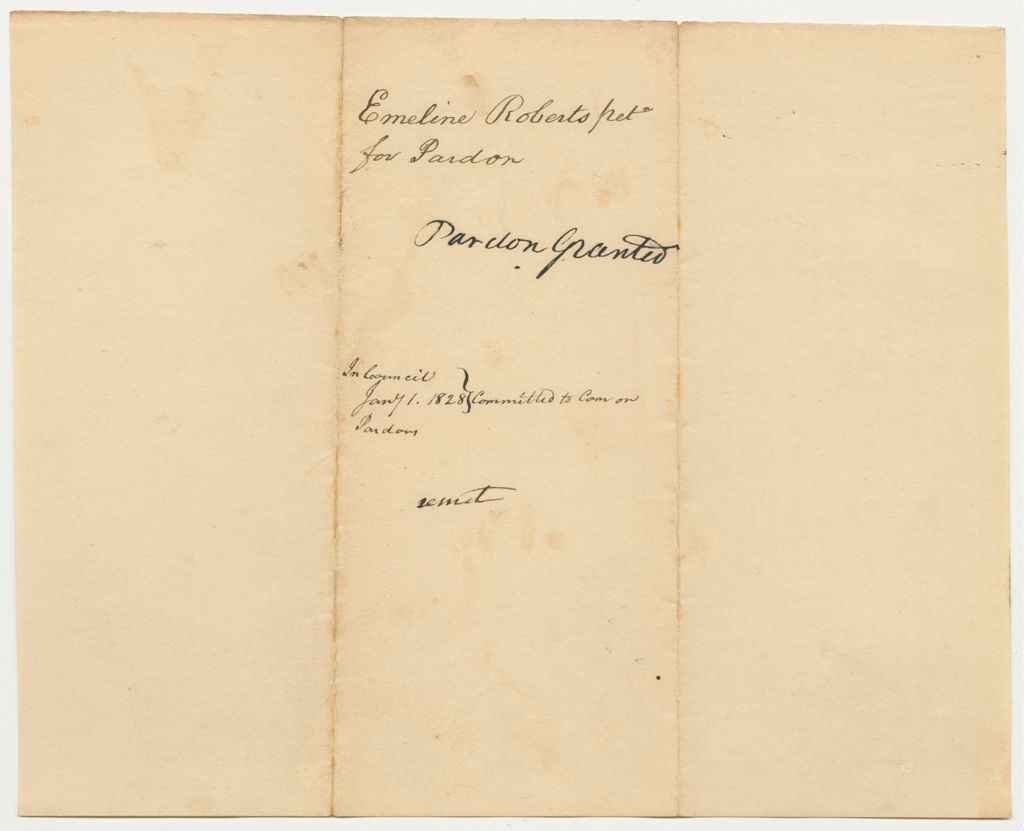 Emeline Roberts petn
for Pardon
Pardon Granted
In Council
Jany 1. 1828 } Committed to Com on
Pardons
remit